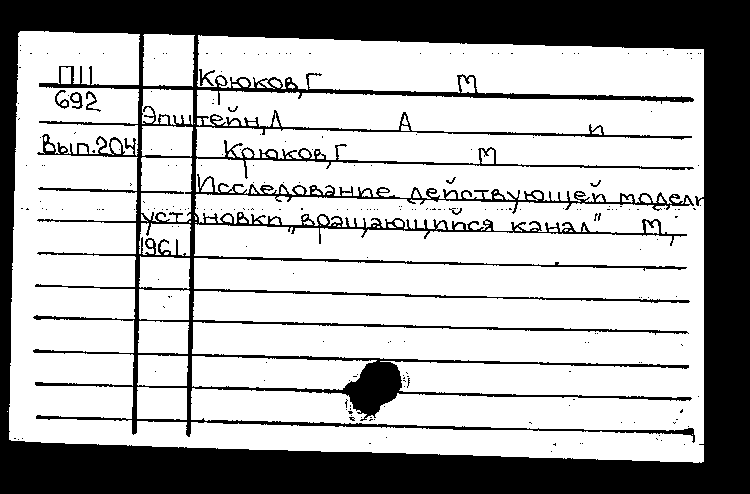 П11 Крюков, Г М
692
Эпштейн, Л А и
Вып.204 Крюков, Г М
Исследование действующей модели
установки „вращающийся канал" М.,
1961.